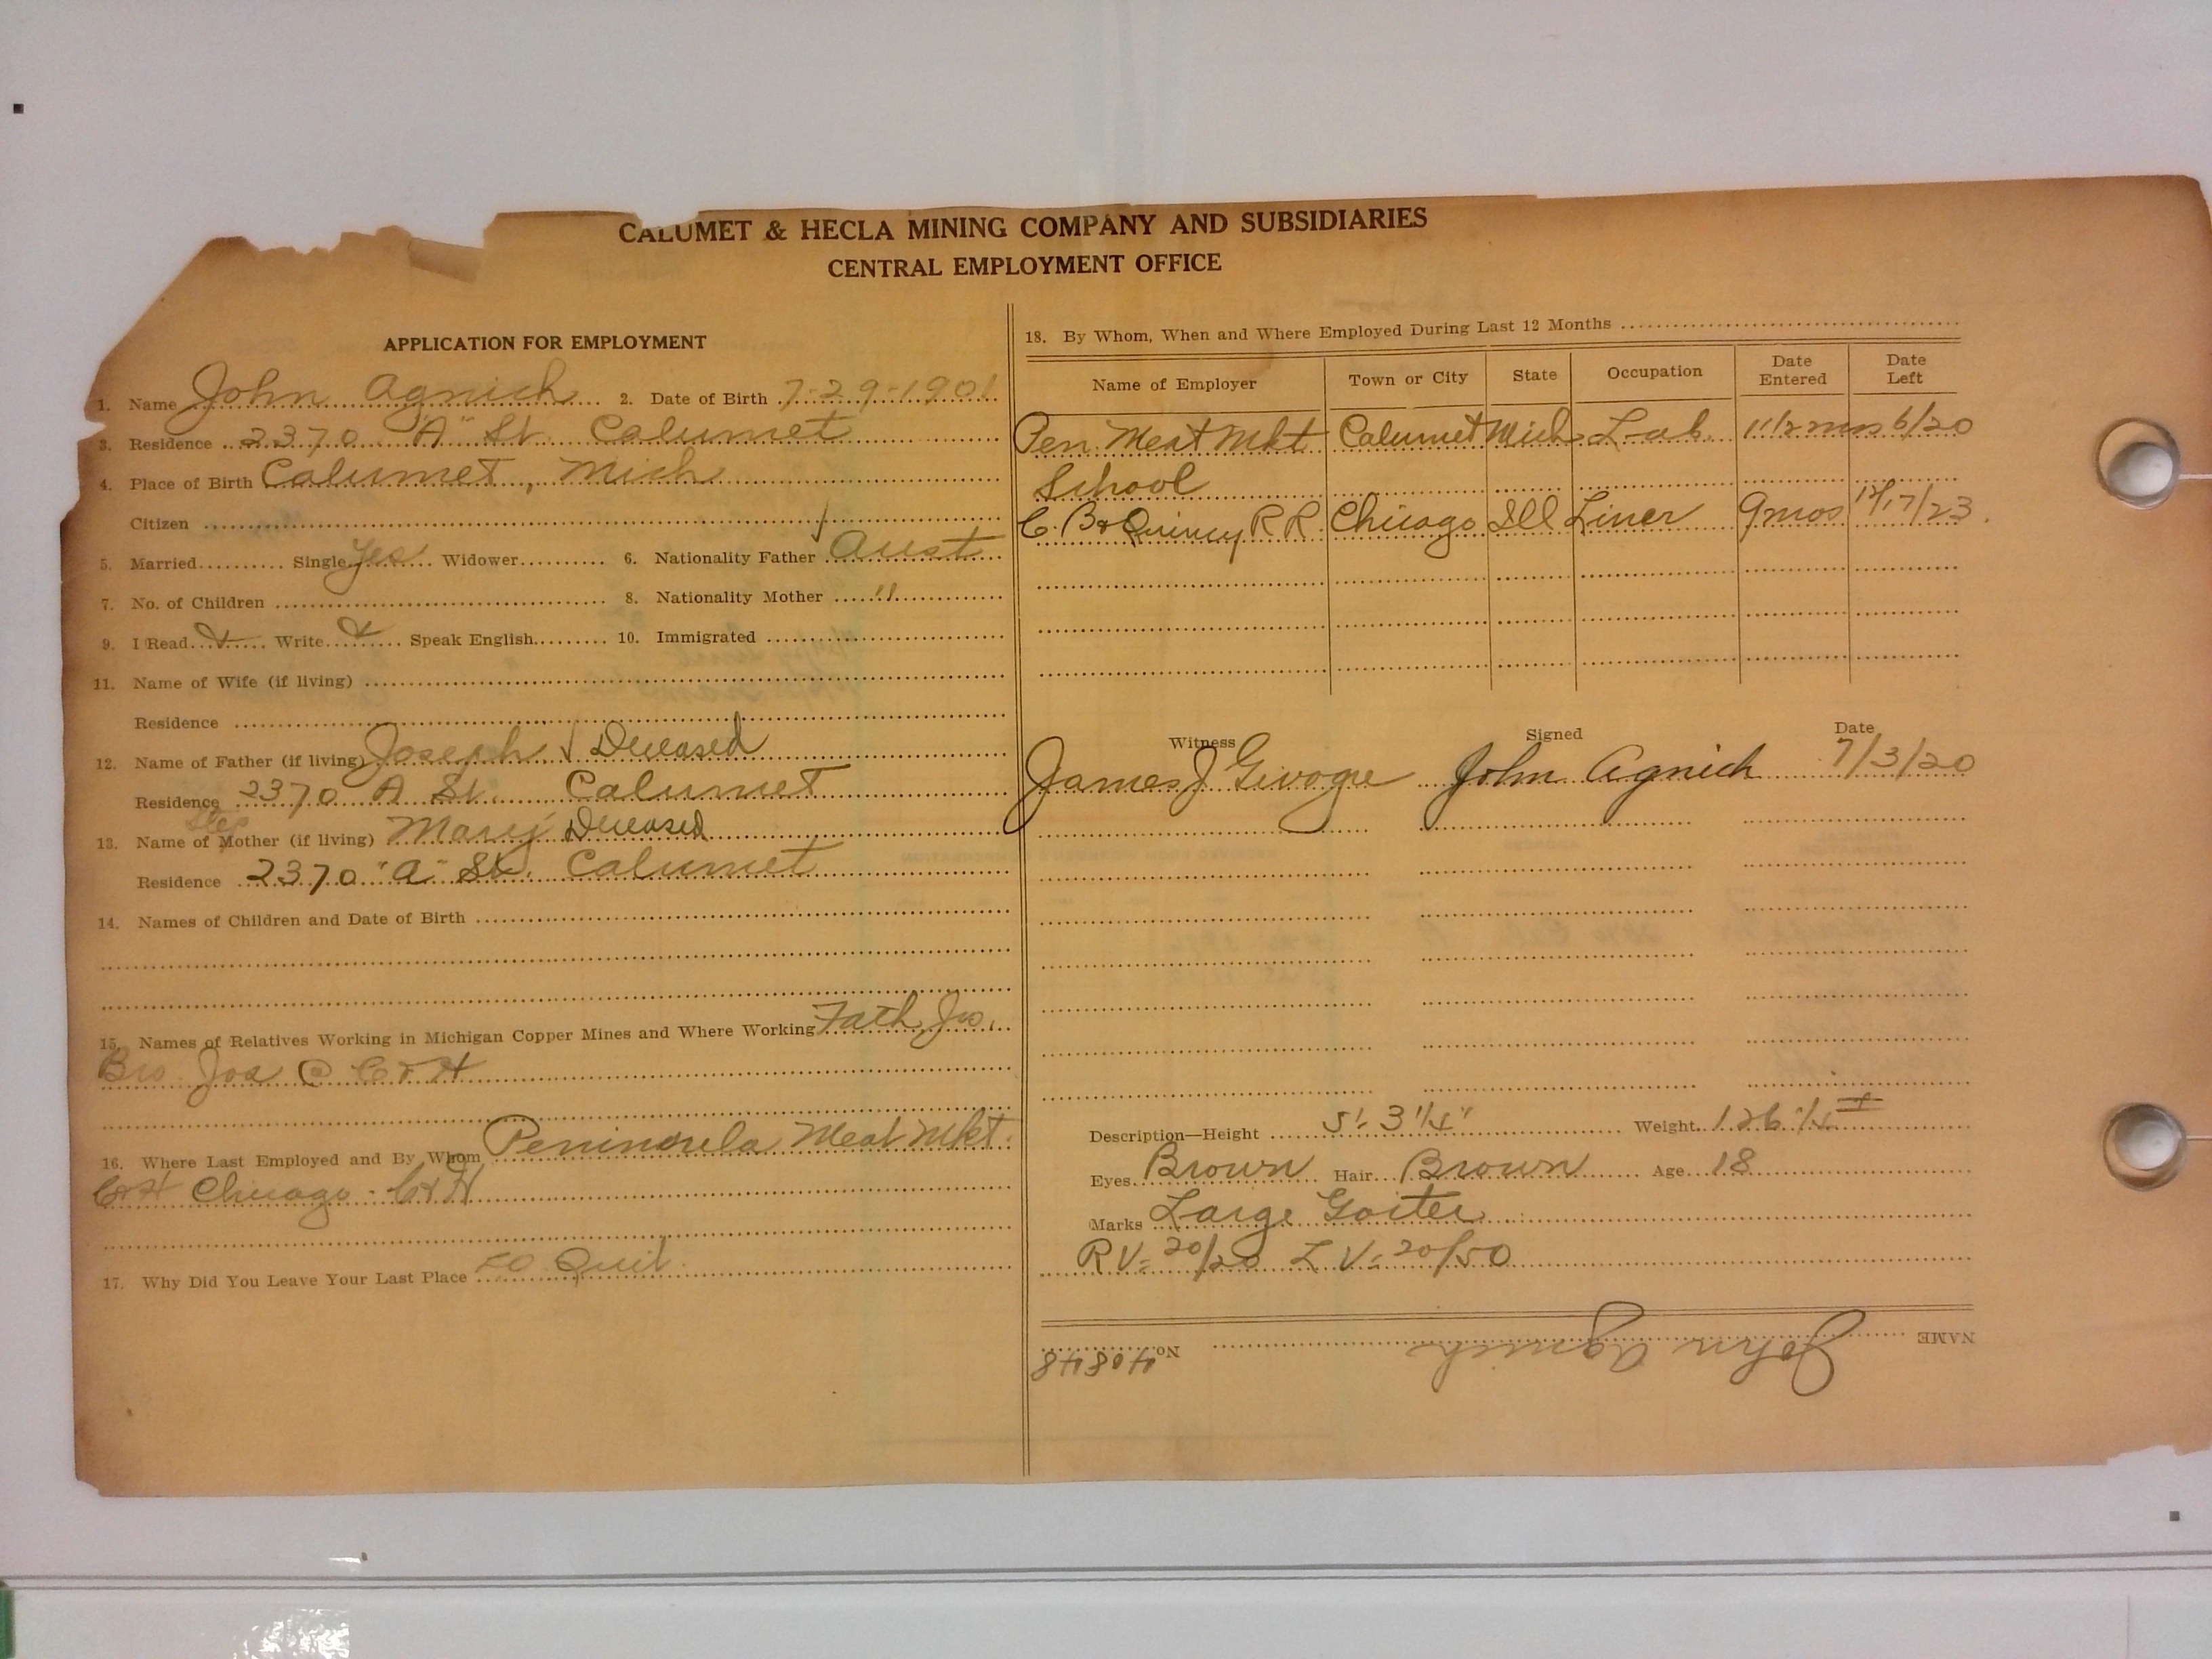 CALUMET & HECLA MINING COMPANY AND SUBSIDIARIES
CENTRAL EMPLOYMENT OFFICE
APPLICATION FOR EMPLOYMENT
1. Name John Agnich 2. Date of Birth 7-29-1901
3. Residence 2370 "A" St. Calumet
4. Place of Birth Calumet, Mich
Citizen
5. Married Single Yes Widower 6. Nationality Father Aust
7. No. of Children 8. Nationality Mother "
9. I Read Write Speak English 10. Immigrated
11. Name of Wife (if living)
Residence
12. Name of Father (if living) Joseph Deceased
Residence 2370 A St. Calumet
Step
13. Name of Mother (if living) Mary Deceased
Residence 2370 "A" St. Calumet
14. Names of Children and Date of Birth
15. Names of Relatives Working in Michigan Copper Mines and Where Working Fath. Jos.
Bro Jos @ C & H
16. Where Last Employed and By Whom Peninsula Meat Mkt.
C&H Chicago - C&H
17. Why Did You Leave Your Last Place Quit
18. By Whom, When and Where Employed During Last 12 Months
Name of Employer Town or City State Occupation Date Entered Date Left
Pen. Meat Mkt Calumet Mich Lab. 1 1/2 mos 6/20
School
C. B & Quincy RR Chicago Ill Liner 9 mos 12/17/23
Witness Signed Date
James J John Agnich 7/3/20
Description—Height 5'- 3 1/4" Weight 126 1/4 #
Eyes Brown Hair Brown Age 18
Marks Large Goiter
R V = 20/20 L V = 20/50
NAME John Agnich No. 40848